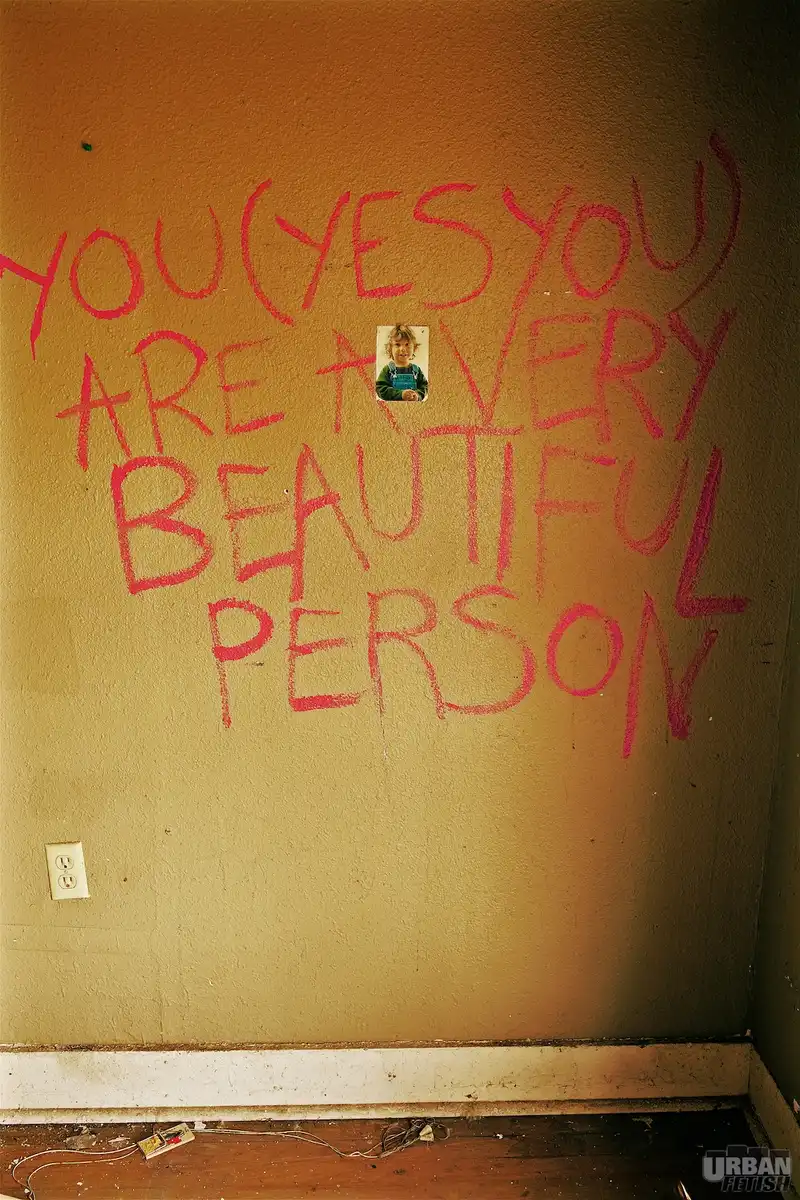 YOU (YES YOU)
ARE A VERY
BEAUTIFUL
PERSON
URBAN
FETISH